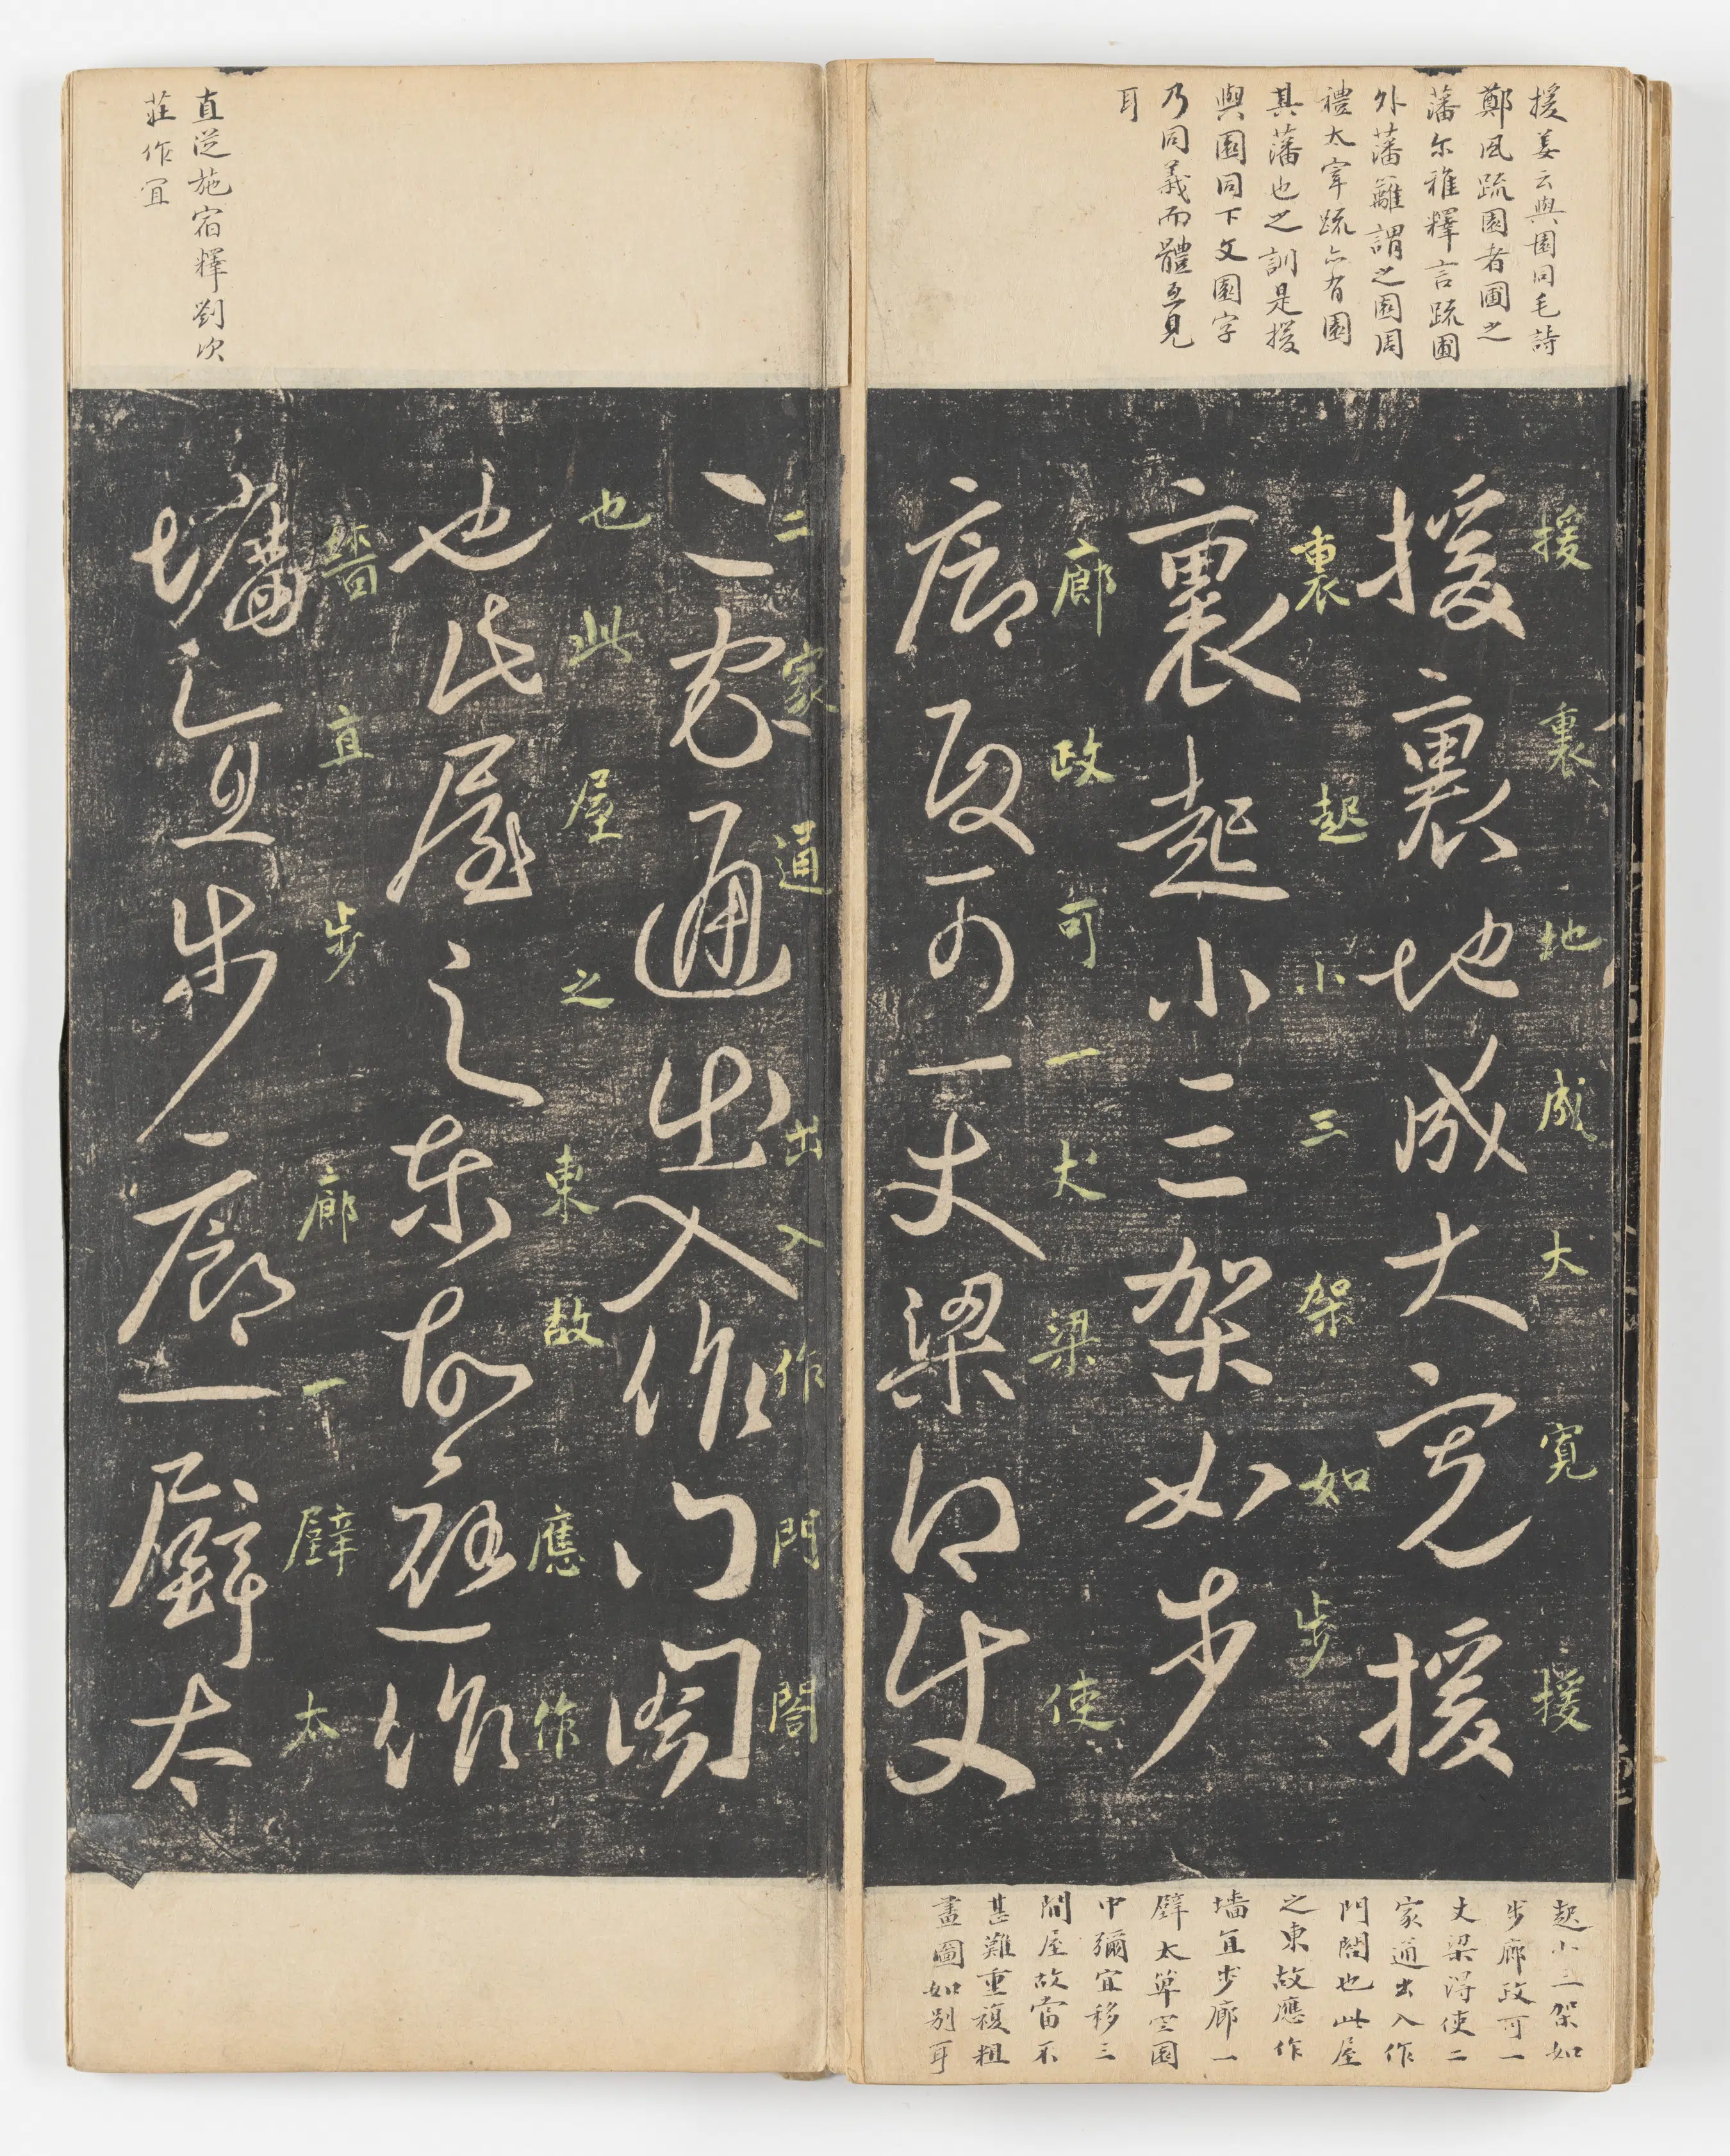 援姜云與園同毛詩
鄭風疏園者圃之
藩尔雅釋言疏圃
外藩籬謂之園周
禮太宰疏亦有園
其藩也之訓是援
與園同下文園字
乃同義而體互見
耳
援裏地成大寬援
援裏地成大寬援
裏起小三架如步
裏起小三架如步
廊政可一丈梁使
廊政可一丈梁得使
起小三架如
步廊政可一
丈梁得使二
家通出入作
門閤也此屋
之東故應作
墻直步廊一
壁太單空園
中彌宜移三
間屋故當不
甚難重複粗
盡圖如別耳
直從施宿釋劉次
莊作冝
二家通出入作門閤
二家通出入作門閤
也此屋之東故應作
也此屋之東故應作
直步廊一壁太
墻直步廊一壁太